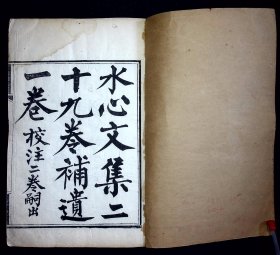 水心文集二
十九卷補遺
一卷校注二卷嗣出